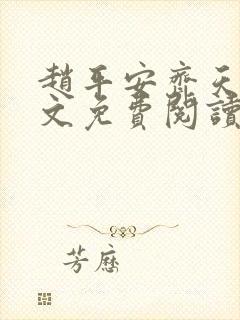 趙平安齊天
文免費閱讀
芳歷